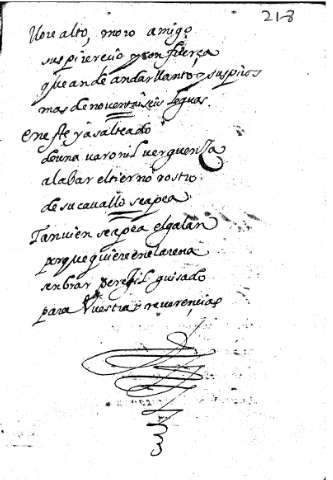 218
llore alto, moro amigo
suspire recio y con fuerça
que an de andar llanto y suspiros
mas de noventa i seis leguas.
en esto ya salteado
de una varonil verguença
a labar el tierno rostro
de su cavallo se apea
Tanvien se apea el galan
porque quiere en el arena
senbrar perejil guisado
para vuestras reverençias